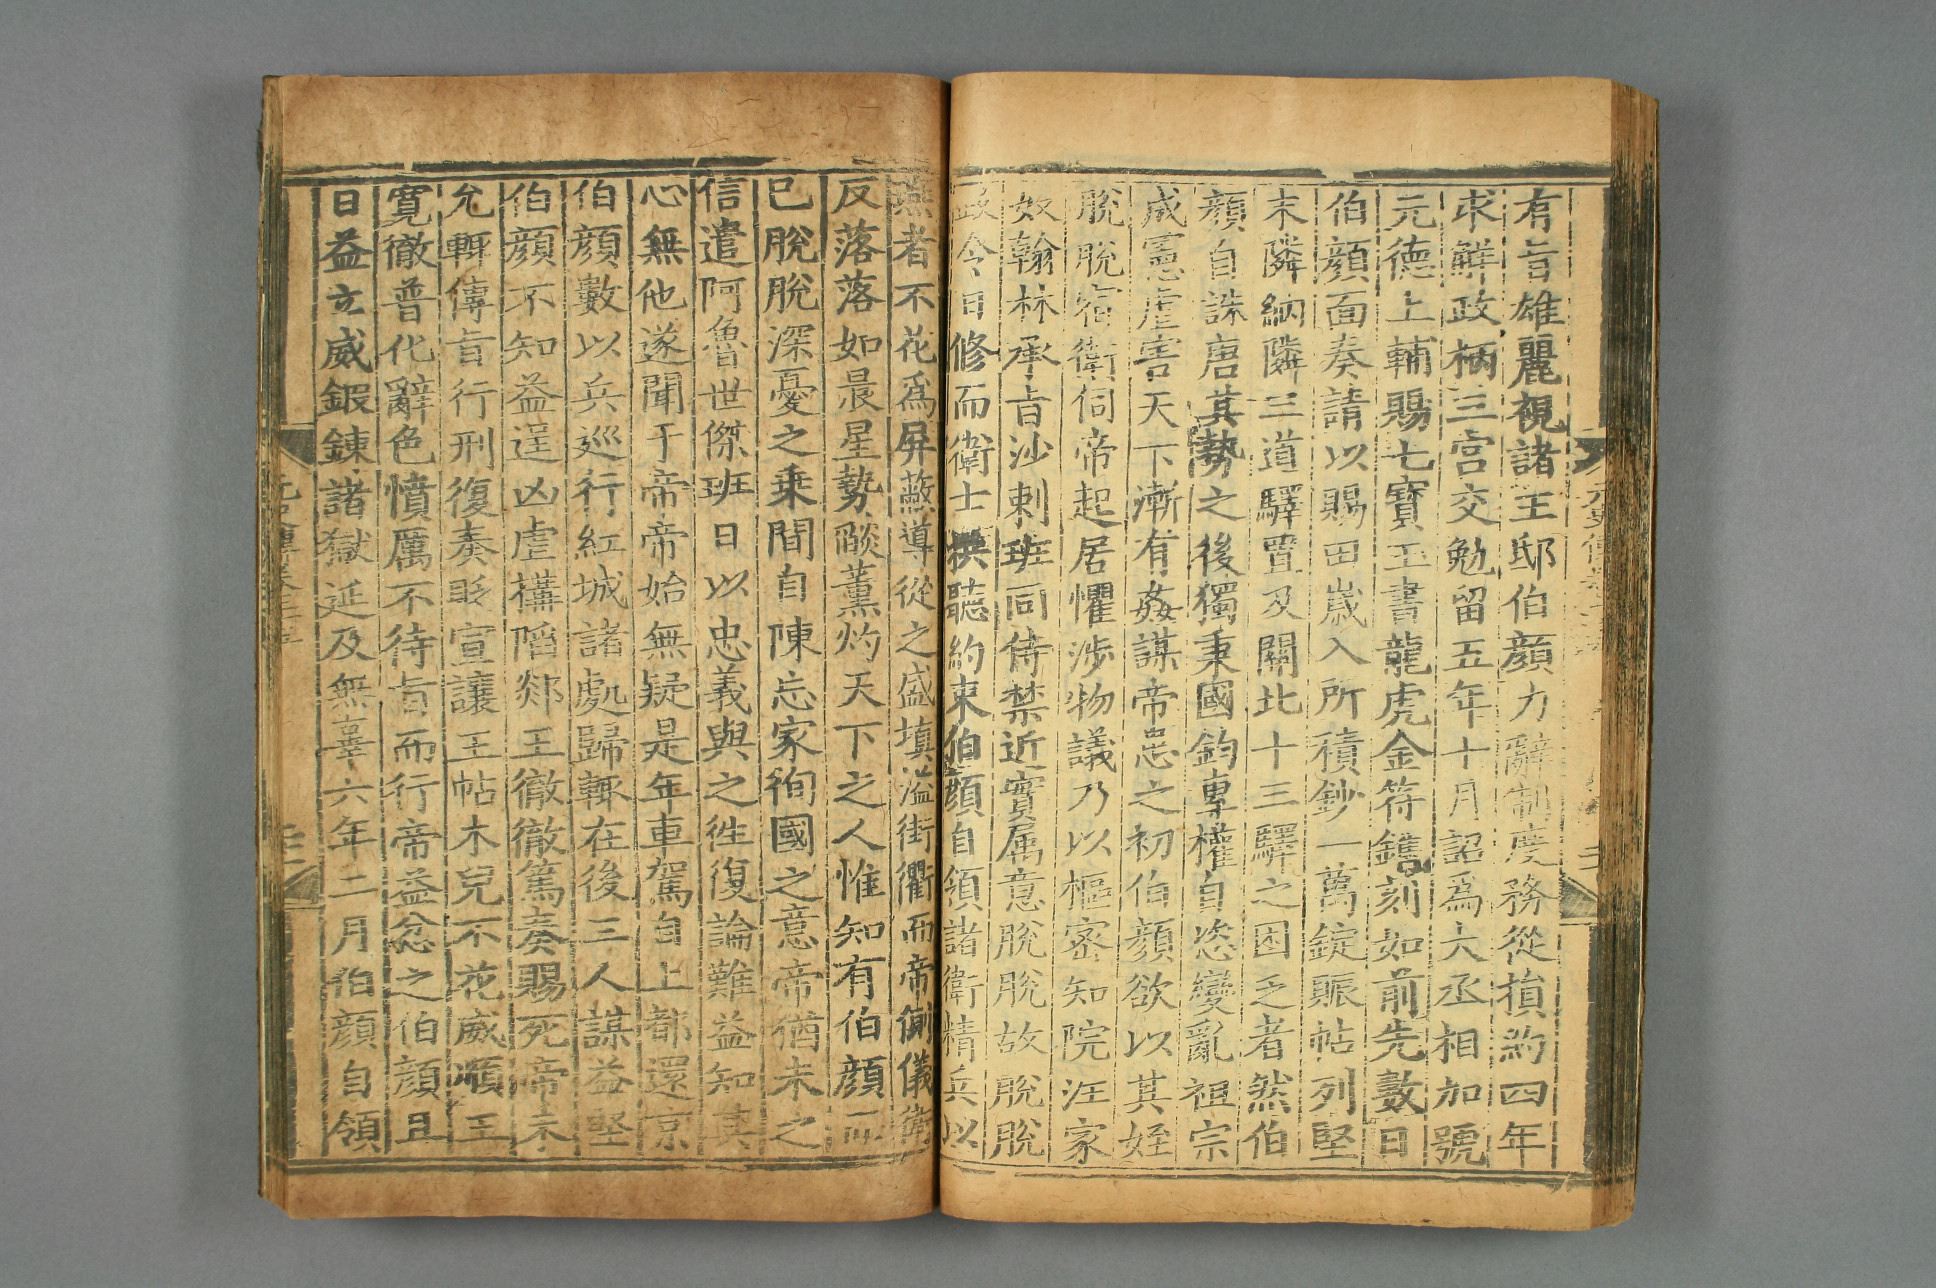 有旨雄麗視諸王邸伯顏力辭制度務從損約四年
求解政柄三宮交勉留五年十月詔爲大丞相加號
元德上輔賜七寶玉書龍虎金符鐫刻如前先數日
伯顏面奏請以賜田歲入所積鈔一萬錠賑帖列堅
末隣納隣三道驛置及關北十三驛之困乏者然伯
顏自誅唐其勢之後獨秉國鈞專權自恣變亂祖宗
成憲虐害天下漸有姦謀帝患之初伯顏欲以其姪
脫脫宿衛伺帝起居懼涉物議乃以樞密知院汪家
奴翰林承旨沙剌班同侍禁近實属意脫脫故脫脫
政令日修而衛士拱聽約束伯顏自領諸衛精兵以
燕者不花爲屏蔽導從之盛填溢街衢而帝側儀衛
反落落如晨星勢燄薰灼天下之人惟知有伯顏而
已脫脫深憂之乗間自陳忘家徇國之意帝猶未之
信遣阿魯世傑班日以忠義與之徃復論難益知其
心無他遂聞于帝帝始無疑是年車駕自上都還京
伯顏數以兵巡行紅城諸處歸輙在後三人謀益堅
伯顏不知益逞凶虐搆陷郯王徹徹篤奏賜死帝未
允輙傳旨行刑復奏貶宣讓王帖木兒不花威順王
寛徹普化辭色憤厲不待旨而行帝益忿之伯顏且
日益立威鍜鍊諸獄延及無辜六年二月伯顏自領
元史傳卷二十五